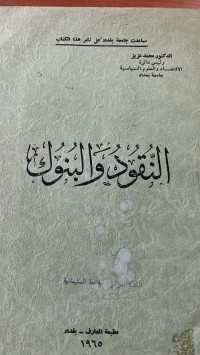 ساعدت جامعة بغداد على نشر هذا الكتاب
الدكتور محمد عزيز
رئيس دائرة
الاقتصاد والعلوم السياسية
جامعة بغداد
النقود والبنوك
السليمانية
مطبعة المعارف - بغداد
١٩٦٥